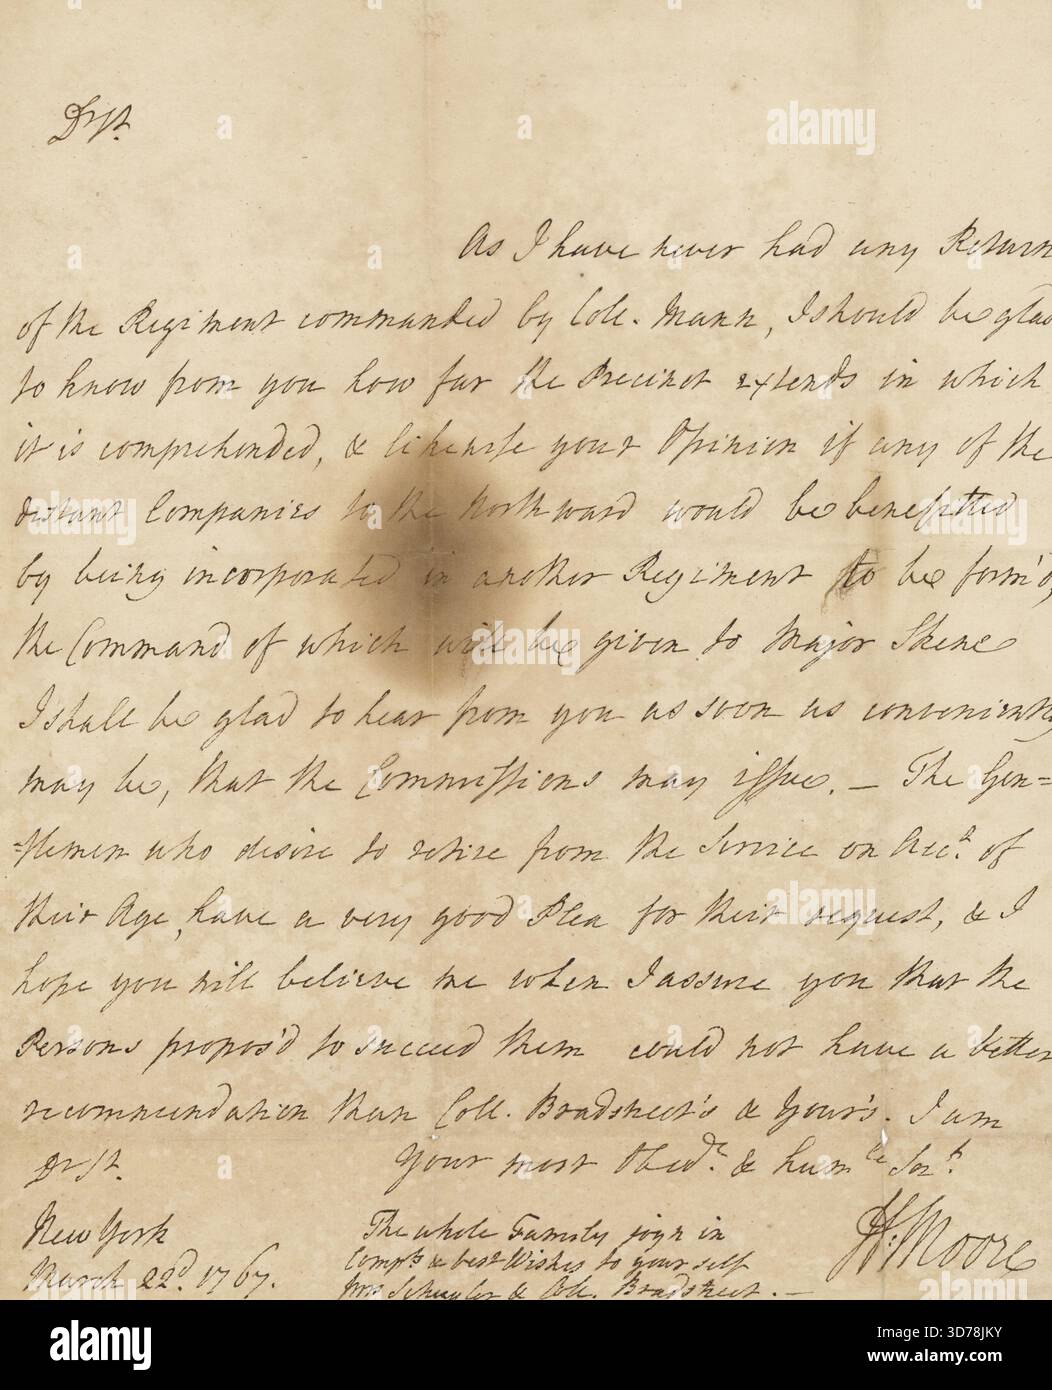 Dr Sr.
As I have never had any Return
of the Regiment commanded by Coll. Mann, I should be glad
to know from you how far the Precinct extends in which
it is comprehended, & likewise your Opinion if any of the
distant Companies to the Northward would be benefitted
by being incorporated in another Regiment to be form'd,
the Command of which will be given to Major Skene
I shall be glad to hear from you as soon as conveniently
may be, that the Commissions may issue. — The Gen=
=tlemen who desire to retire from the Service on Acct. of
their Age, have a very good Plea for their request, & I
hope you will believe me when I assure you that the
Persons propos'd to succeed them could not have a better
recommendation than Coll. Bradstreet's & Your's. I am
Dr Sr.
Your most Obedt. & humble Sert.
H: Moore
New York
March 22d. 1767.
The whole Family joyn in
Compts & best Wishes to your self
Mrs Schuyler & Coll. Bradstreet. —
alamy
Image ID: 3D78JKY
www.alamy.com